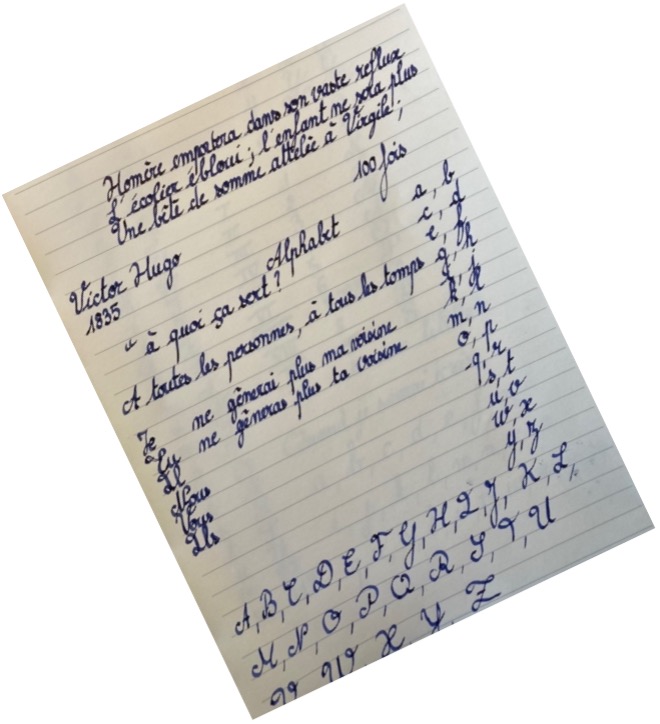 Homère emportera dans son vaste reflux
L'écolier ébloui ; l'enfant ne sera plus
Une bête de somme attelée à Virgile ;
100 fois
Victor Hugo
1835
Alphabet
" à quoi ça sert ?
A toutes les personnes, à tous les temps
Je ne gênerai plus ma voisine
Tu ne gêneras plus ta voisine
Il
Nous
Vous
Ils
a, b
c, d
e, f
g, h
i, j
k, l
m, n
o, p
q, r
s, t
u, v
w, x
y, z
A, B, C, D, E, F, G, H, I, J, K, L,
M, N, O, P, Q, R, S, T, U
V, W, X, Y, Z